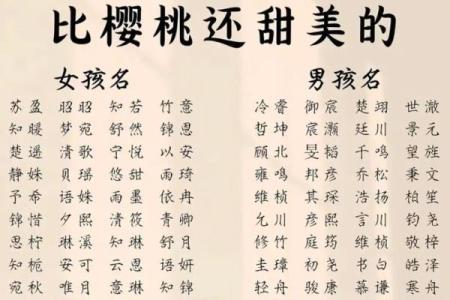 比樱桃还甜美的
女孩名 男孩名
苏盈 昭昭 知若 竹意 冷睿 御宸 楚翊 世澈
知暖 梦宛 舒然 锦思 哲坤 宸灏 廷川 景元
楚遥 清歌 宁悦 以安 顾北 旻韬 千鸣 望旌
静姝 贝瑶 悠甜 雨琦 雍鸣 邦彦 乔松 秉文
予希 语姝 雨墨 依冉 维桢 其琛 浩扬 柏笙
锦惜 夕熙 清筱 青卿 允川 彦熙 言川 钧尧
思柠 琳溪 知琳 舒月 修竹 庭筠 维桢 敬梓
知栀 安可 云思 语妍 圭璋 初尧 书白 皓尧
宛秋 唯月 意琳 知锦 轻舟 骏康 慕谦 寒舟